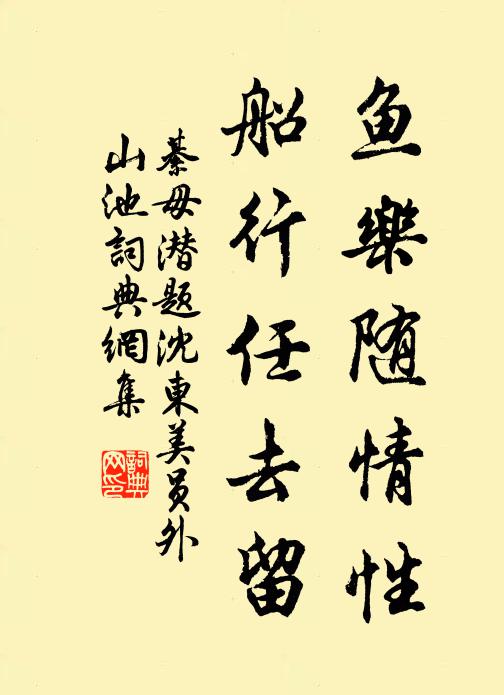 鱼樂随情性
船行任去留
綦毋潜题沈東美员外
山池詞典網集
詞典网印